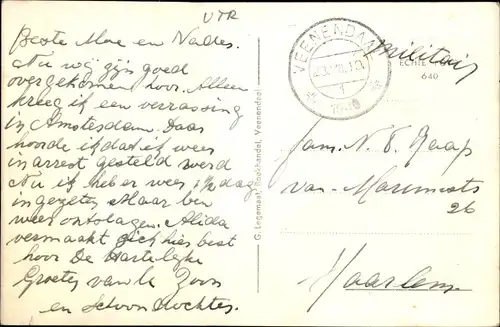 UTR
Beste Moe en Vader.
Nu wij zijn goed
overgekomen hoor. Alleen
kreeg ik een verrassing
in Amsterdam. Daar
hoorde ik dat ik weer
in arrest gesteld werd
Nu ik heb er weer dag
in gezeten Maar ben
weer ontslagen. Alida
vermaakt zich hier best
hoor De Hartelijke
Groeten van Je Zoon
en Schoon Dochter.
G. Legemaat, Boekhandel, Veenendaal
VEENENDAAL
1
1940
Militair
ECHTE
640
Fam. N. v. Gaap
van
26
Haarlem